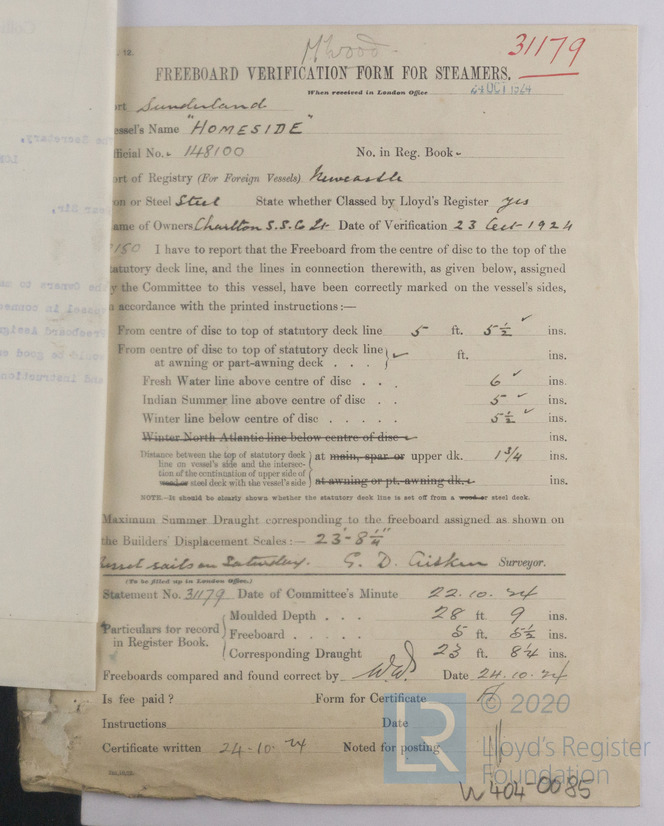 12.
31179
FREEBOARD VERIFICATION FORM FOR STEAMERS.
When received in London Office
ort Sunderland
essel's Name "HOMESIDE"
fficial No. 148100 No. in Reg. Book
ort of Registry (For Foreign Vessels) Newcastle
on or Steel Steel State whether Classed by Lloyd's Register yes
ame of Owners Charlton S.S. Co Lt Date of Verification 23 Oct 1924
I have to report that the Freeboard from the centre of disc to the top of the
tatutory deck line, and the lines in connection therewith, as given below, assigned
y the Committee to this vessel, have been correctly marked on the vessel's sides,
n accordance with the printed instructions:—
From centre of disc to top of statutory deck line 5 ft. 5½ ins.
From centre of disc to top of statutory deck line
at awning or part-awning deck . . . ft. ins.
Fresh Water line above centre of disc . . . 6 ins.
Indian Summer line above centre of disc . . 5 ins.
Winter line below centre of disc . . . . . 5½ ins.
Winter North Atlantic line below centre of disc ins.
Distance between the top of statutory deck
line on vessel's side and the intersec-
tion of the continuation of upper side of
wood or steel deck with the vessel's side
at main, spar or upper dk. 1¾ ins.
at awning or pt. awning dk. ins.
NOTE.—It should be clearly shown whether the statutory deck line is set off from a wood or steel deck.
Maximum Summer Draught corresponding to the freeboard assigned as shown on
the Builders' Displacement Scales:— 23'-8¼"
essel sails on Saturday. G. D. Aisken Surveyor.
(To be filled up in London Office.)
Statement No. 31179 Date of Committee's Minute 22.10.24
Particulars for record
in Register Book.
Moulded Depth . . . 28 ft. 9 ins.
Freeboard . . . . . 5 ft. 5½ ins.
Corresponding Draught 23 ft. 8¼ ins.
Freeboards compared and found correct by Date 24.10.24
Is fee paid? Form for Certificate
Instructions Date
Certificate written 24-10-24 Noted for posting
© 2020
LR
Lloyd's Register
Foundation
W404-0085